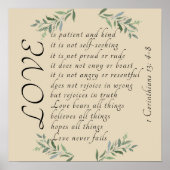 LOVE
is patient and kind
it is not self-seeking
it is not proud or rude
it does not envy or boast
it is not angry or resentful
it does not rejoice in wrong
Love bears all things
believes all things
hopes all things
Love never fails
1 Corinthians 13: 4-8